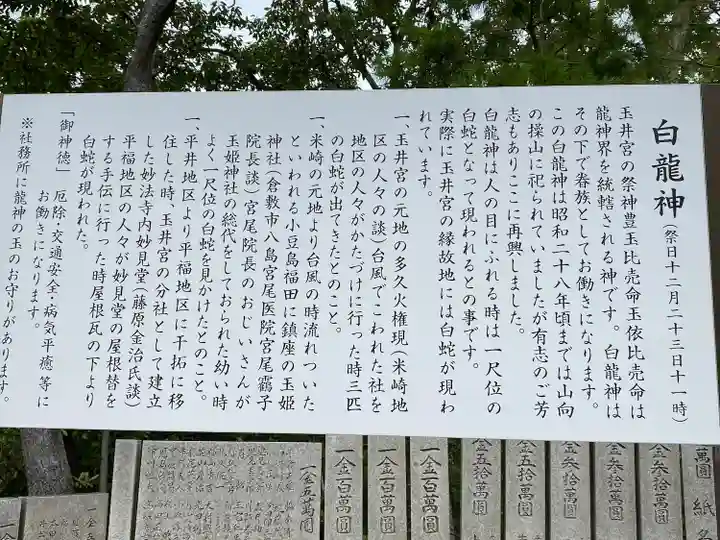 白龍神(祭日十二月二十三日十一時)
玉井宮の祭神豊玉比売命玉依比売命は
龍神界を統轄される神です。白龍神は
その下で眷族としてお働きになります。
この白龍神は昭和二十八年頃までは山向
の操山に祀られていましたが有志のご芳
志もありここに再興しました。
白龍神は人の目にふれる時は一尺位の
白蛇となって現われるとの事です。
実際に玉井宮の縁故地には白蛇が現わ
れています。
一、玉井宮の元地の多久火権現(米崎地
区の人々の談)台風でこわれた社を
地区の人々がかたづけに行った時三匹
の白蛇が出てきたとのこと。
一、米崎の元地より台風の時流れついた
といわれる小豆島福田に鎮座の玉姫
神社(倉敷市八島宮尾医院宮尾靏子
院長談)宮尾院長のおじいさんが
玉姫神社の総代をしておられた幼い時
よく一尺位の白蛇を見かけたとのこと。
一、平井地区より平福地区に干拓に移
住した時、玉井宮の分社として建立
した妙法寺内妙見堂(藤原金治氏談)
平福地区の人々が妙見堂の屋根替を
する手伝に行った時屋根瓦の下より
白蛇が現われた。
「御神徳」 厄除・交通安全・病気平癒等に
お働きになります。
※社務所に龍神の玉のお守りがあります。
萬圓 紙名
金参拾萬圓
金参拾萬圓
金参拾萬圓
金五拾萬圓
金五拾萬圓
一金百萬圓
一金百萬圓
一金百萬圓
一金五萬圓